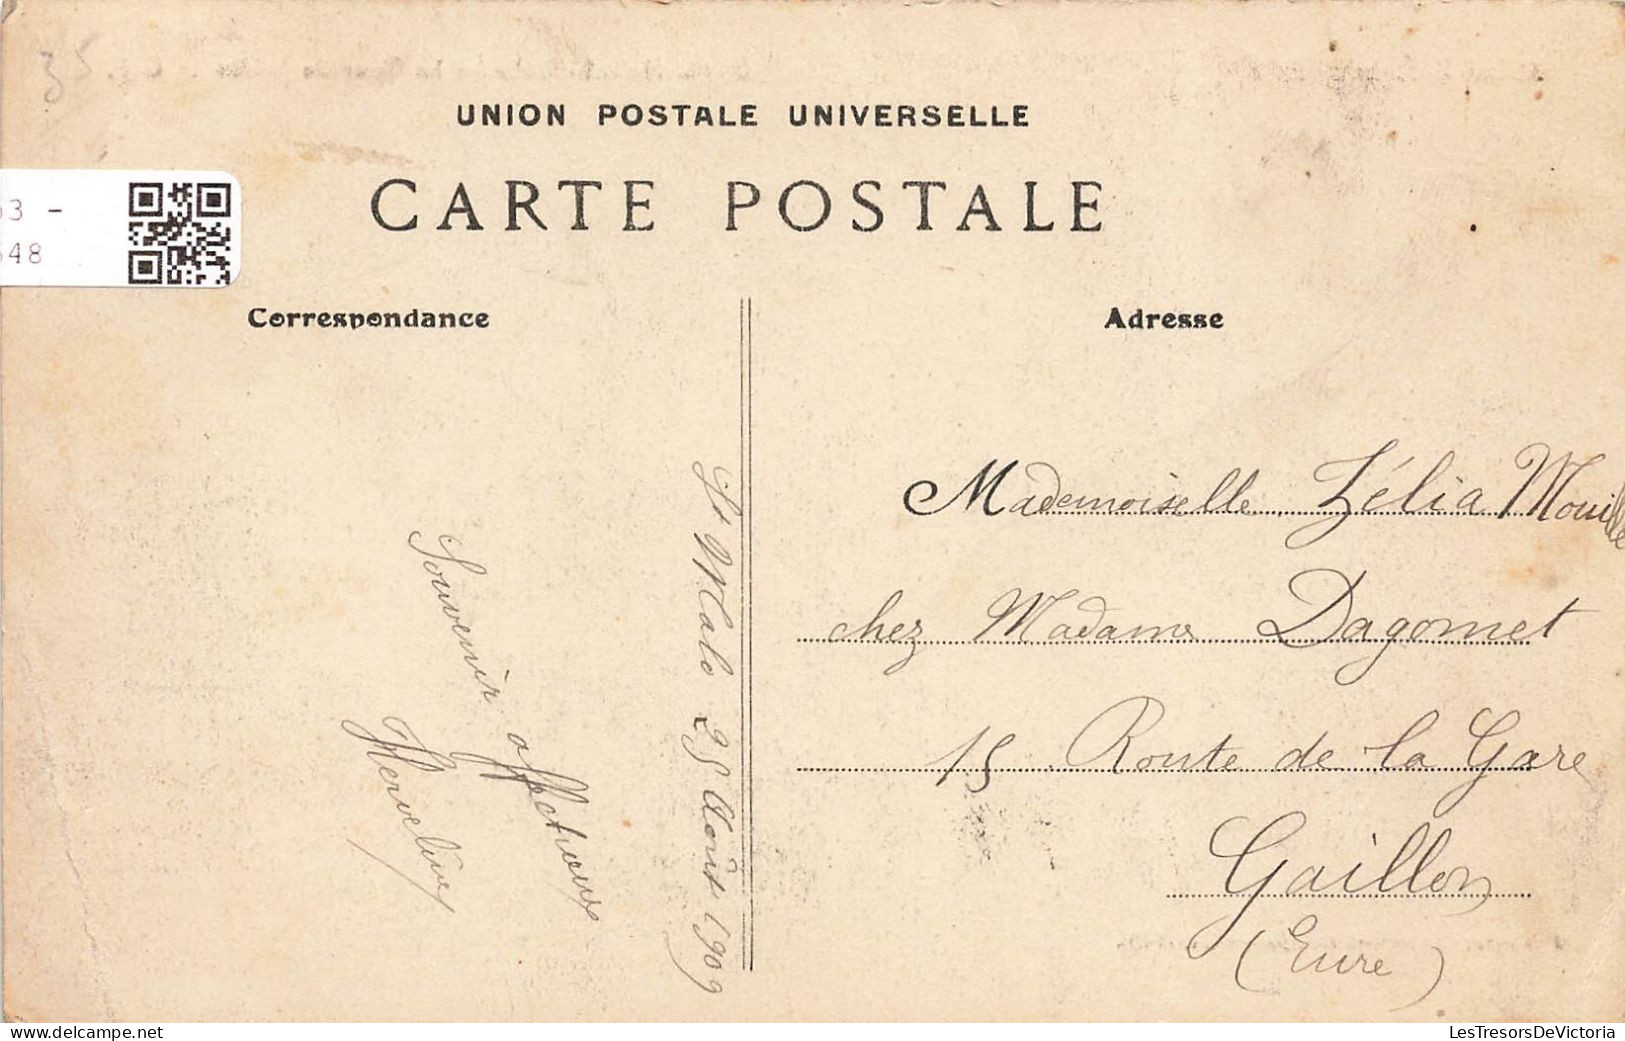 35
UNION POSTALE UNIVERSELLE
CARTE POSTALE
53 -
548
Correspondance
Adresse
St Malo 25 Août 1909
Souvenir affectueux
Mademoiselle Zélia
chez Madame Dagomet
15 Route de la Gare
Gaillon
(Eure)
LesTresorsDeVictoria